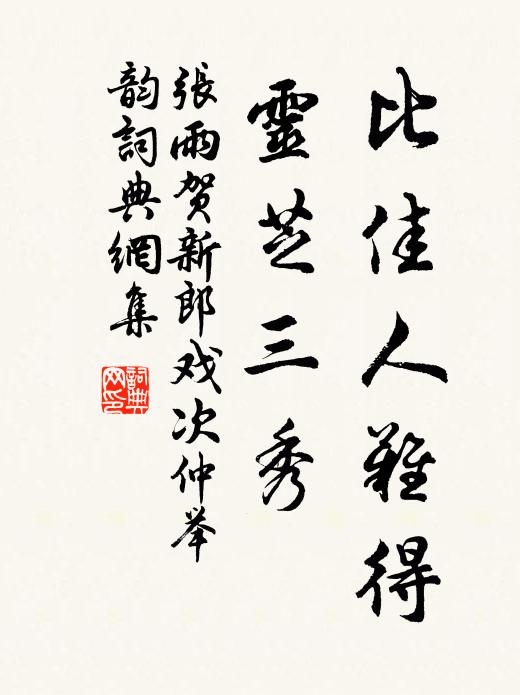 比佳人難得
靈芝三秀
張雨贺新郎戏次仲举
韵詞典網集
詞典网印